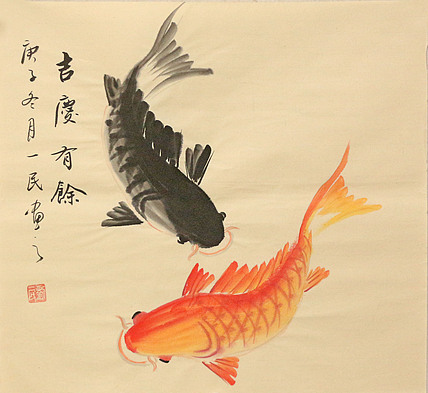 吉慶有餘
庚子冬月一民畫之